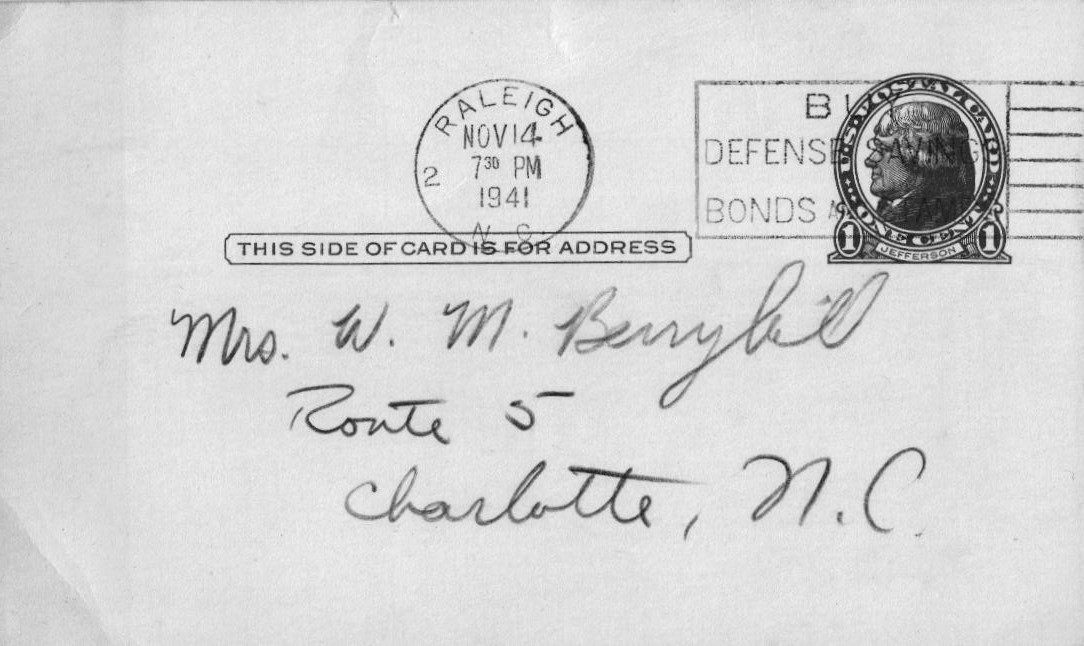 RALEIGH
NOV 14
7 30 PM
1941
2
N. C.
BUY
DEFENSE SAVINGS
BONDS AND STAMPS
U·S·POSTAL CARD
ONE CENT
1 JEFFERSON 1
THIS SIDE OF CARD IS FOR ADDRESS
Mrs. W. M. Berryhill
Route 5
Charlotte, N. C.